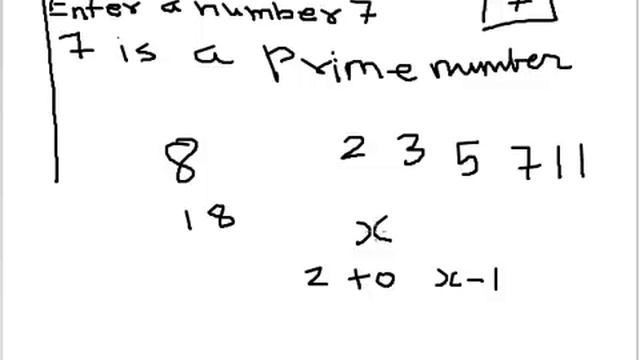 Enter a number 7
7
7 is a prime number
8 2 3 5 7 11
18 x
2 to x-1